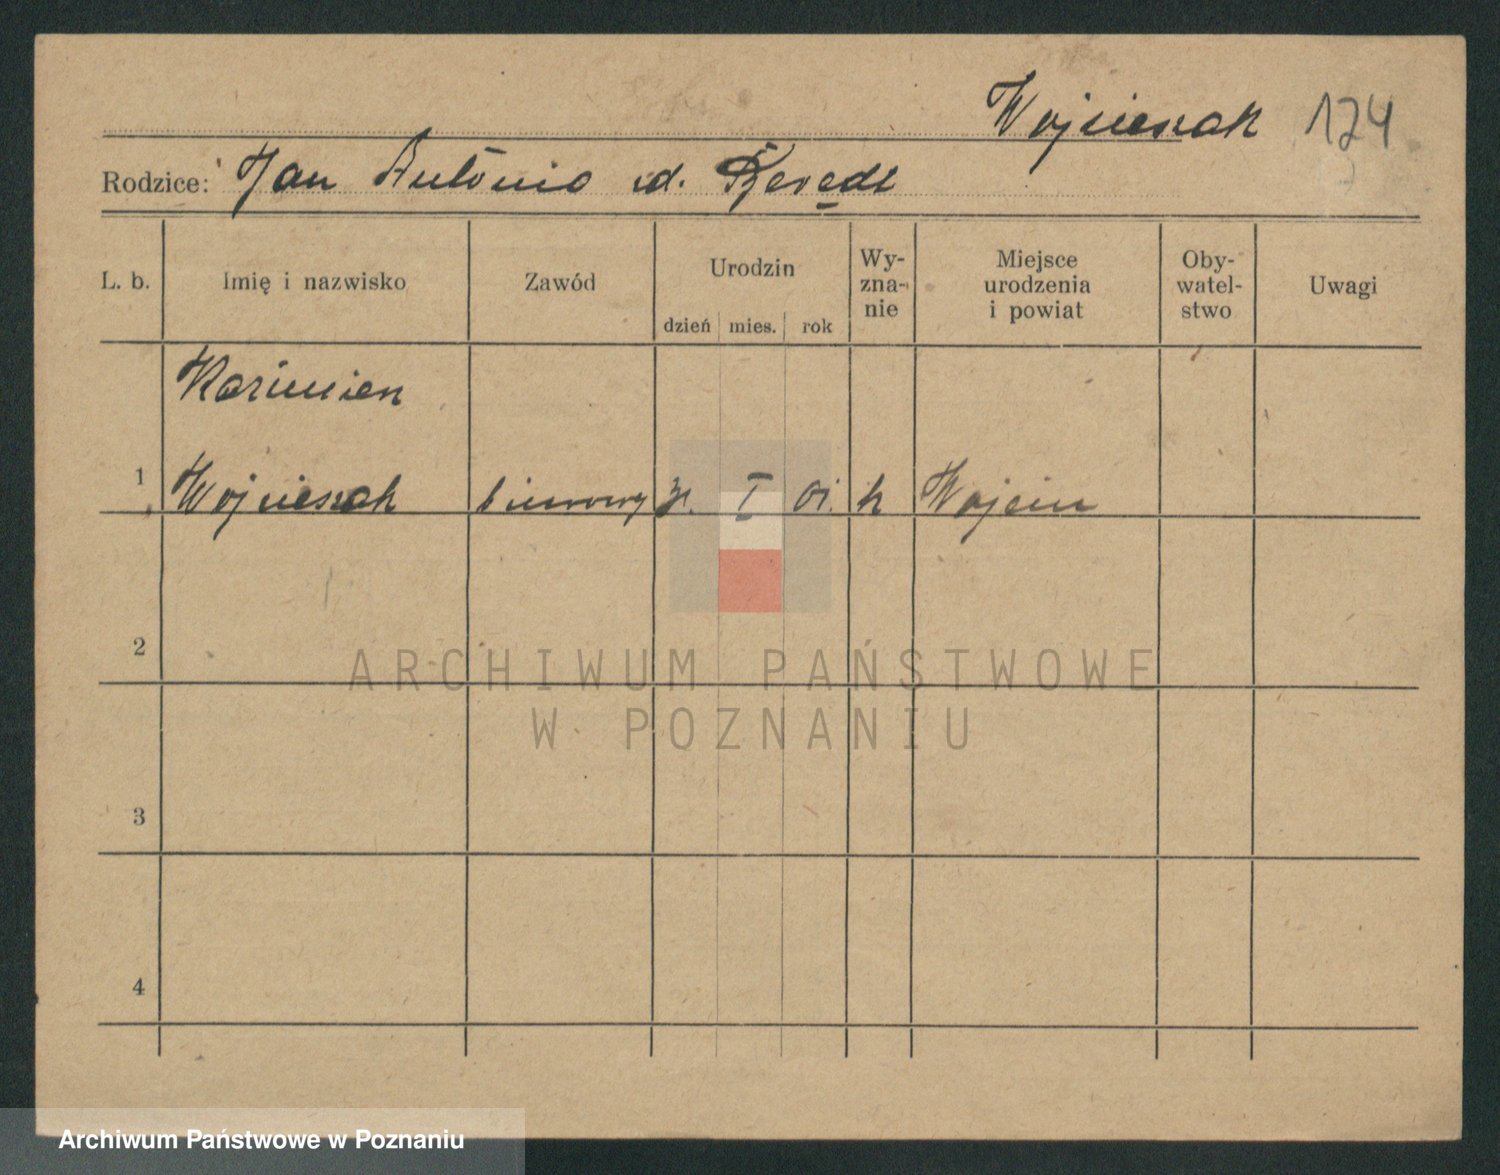 Wojcieszak 174
Rodzice: Jan Antonia
L. b. Imię i nazwisko Zawód Urodzin dzień mies. rok Wy-zna-nie Miejsce urodzenia i powiat Oby-watel-stwo Uwagi
Kazimierz
1 Wojcieszak biurowy I 01. k Wojcin
2
3
4
ARCHIWUM PAŃSTWOWE
W POZNANIU
Archiwum Państwowe w Poznaniu